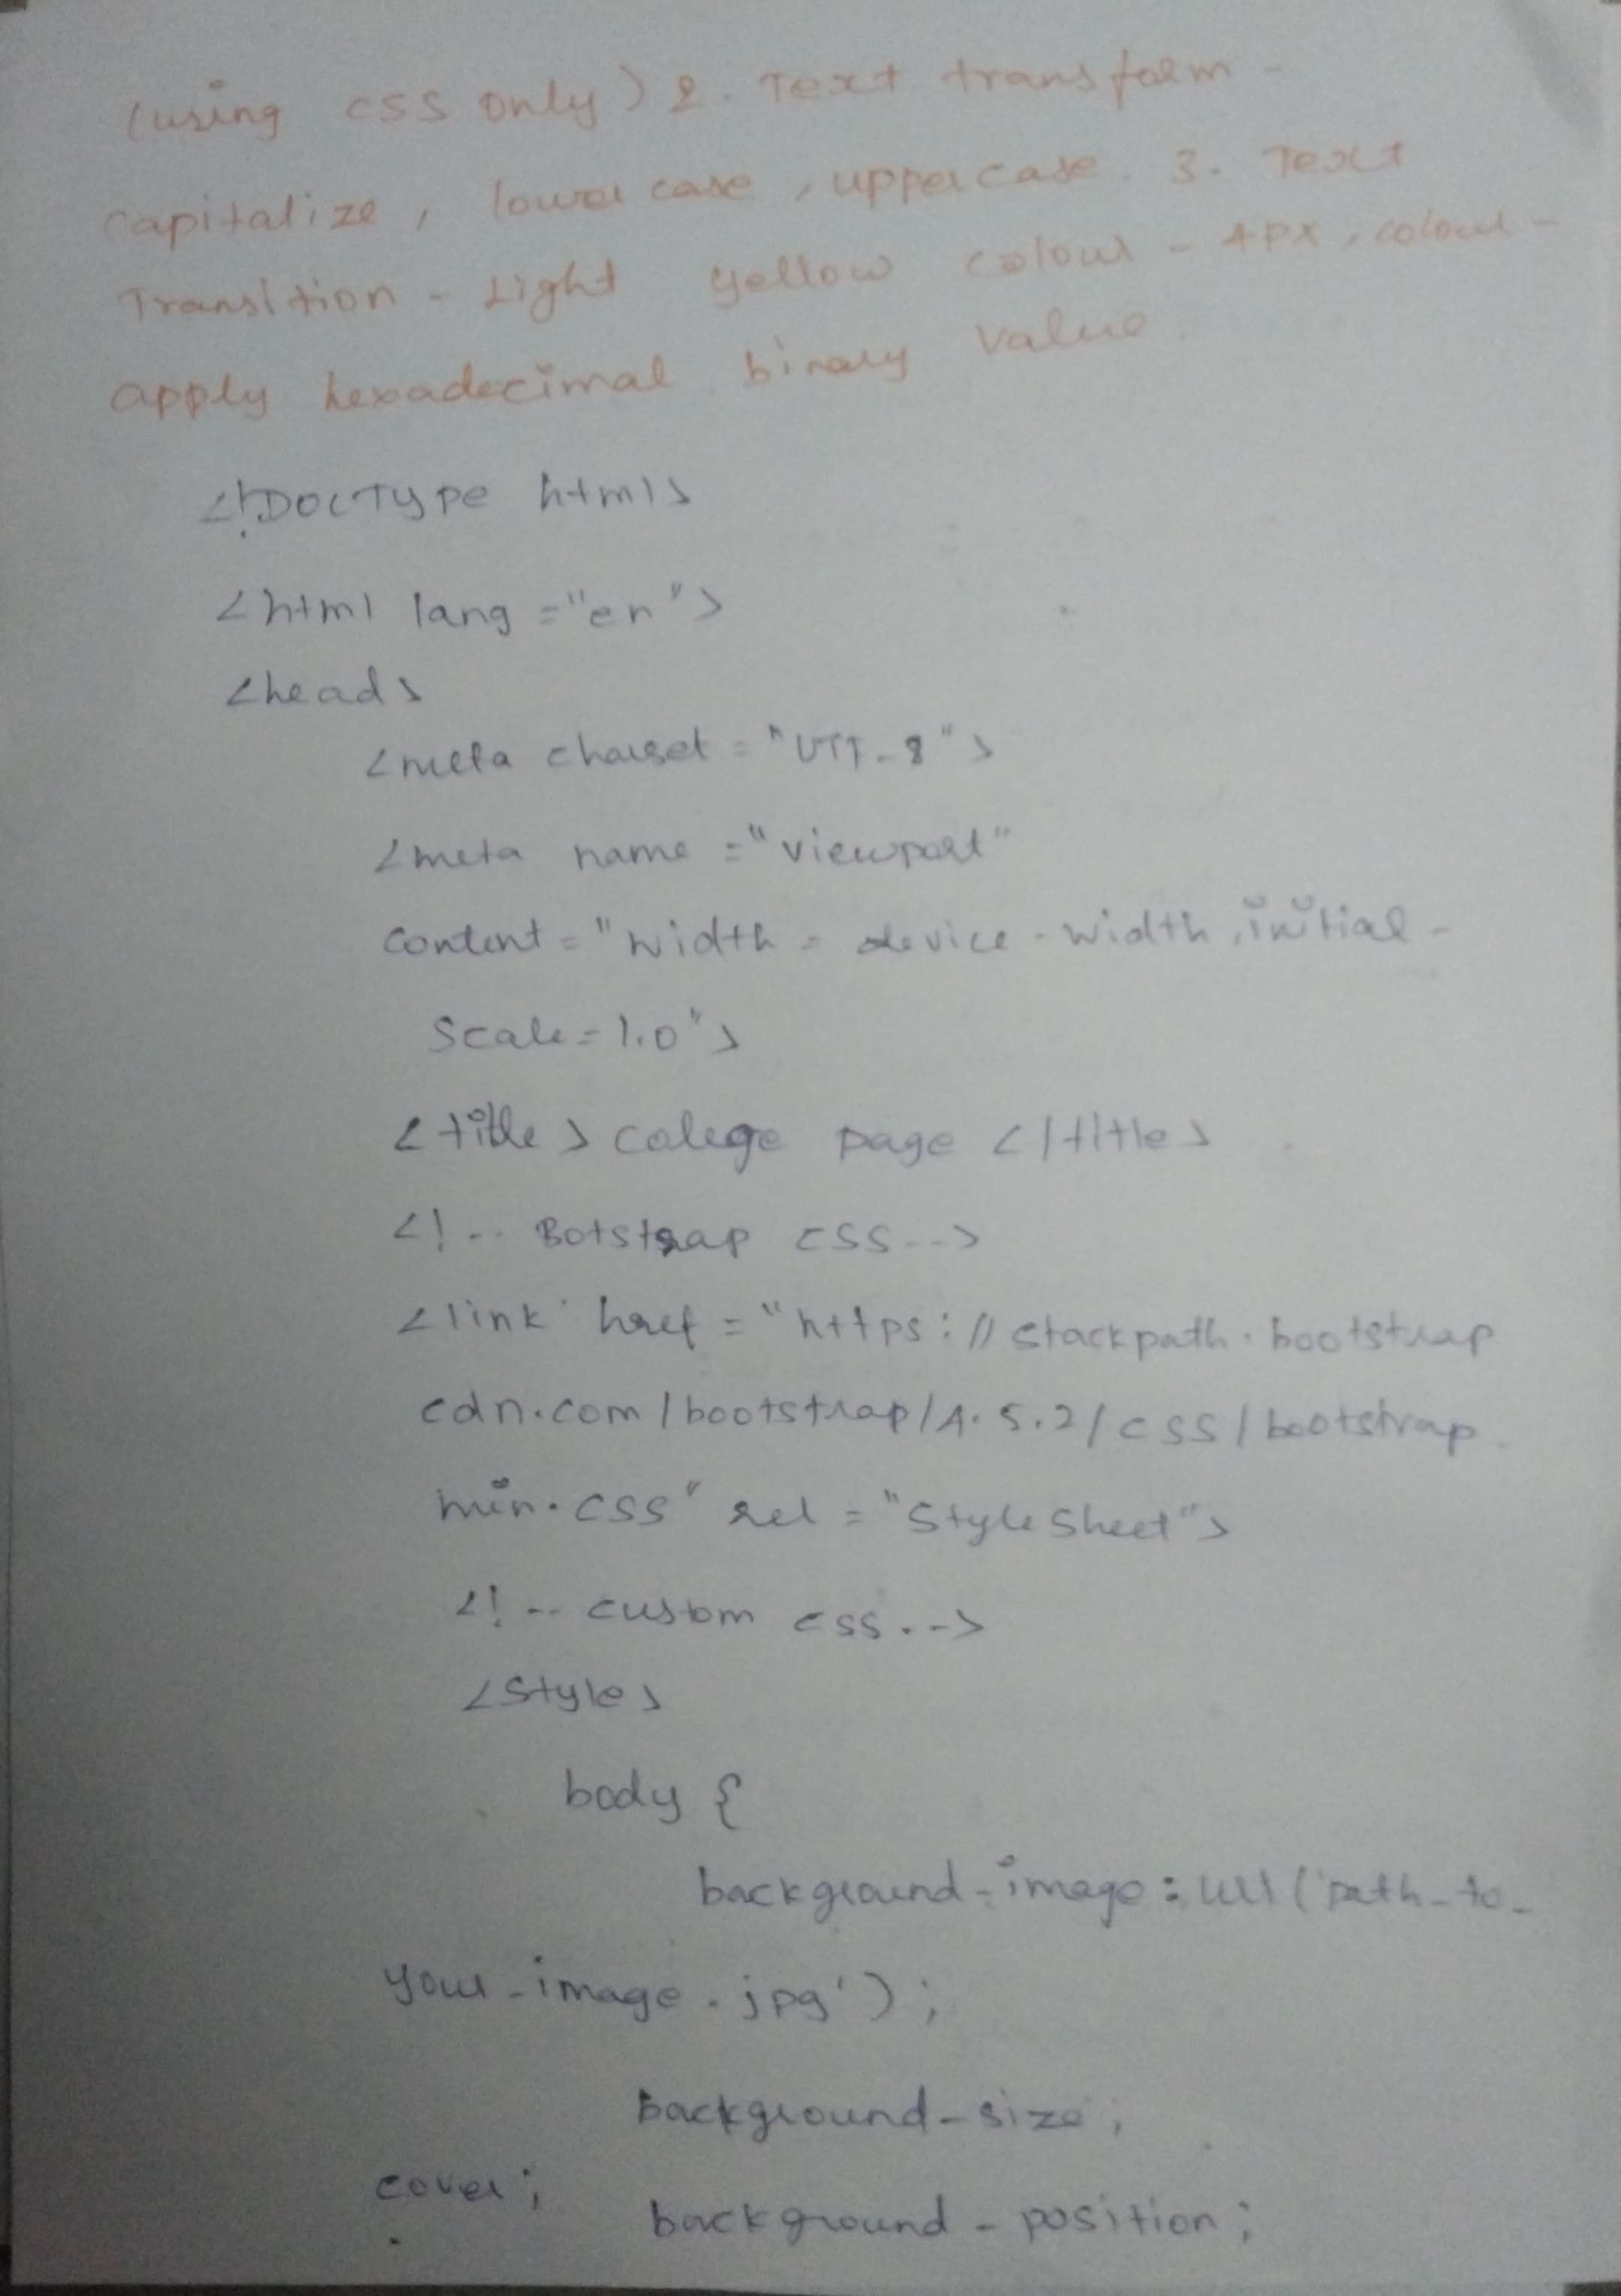 (using css only) 2. Text transform -
capitalize, lowercase, uppercase. 3. Text
Transition - Light yellow colour - 4px, colour -
apply hexadecimal binary value.
<!DOCType html>
<html lang ="en">
<head>
<meta charset = "UTF-8">
<meta name ="viewport"
content = "width = device-width, initial-
scale = 1.0">
<title> college page </title>
<!-- Botstrap css -->
<link href = "https://stackpath.bootstrap
cdn.com/bootstrap/4.5.2/css/bootstrap.
min.css" rel = "stylesheet">
<!-- custom css -->
<style>
body {
background-image: url('path-to-
your-image.jpg');
background-size;
cover;
background-position;